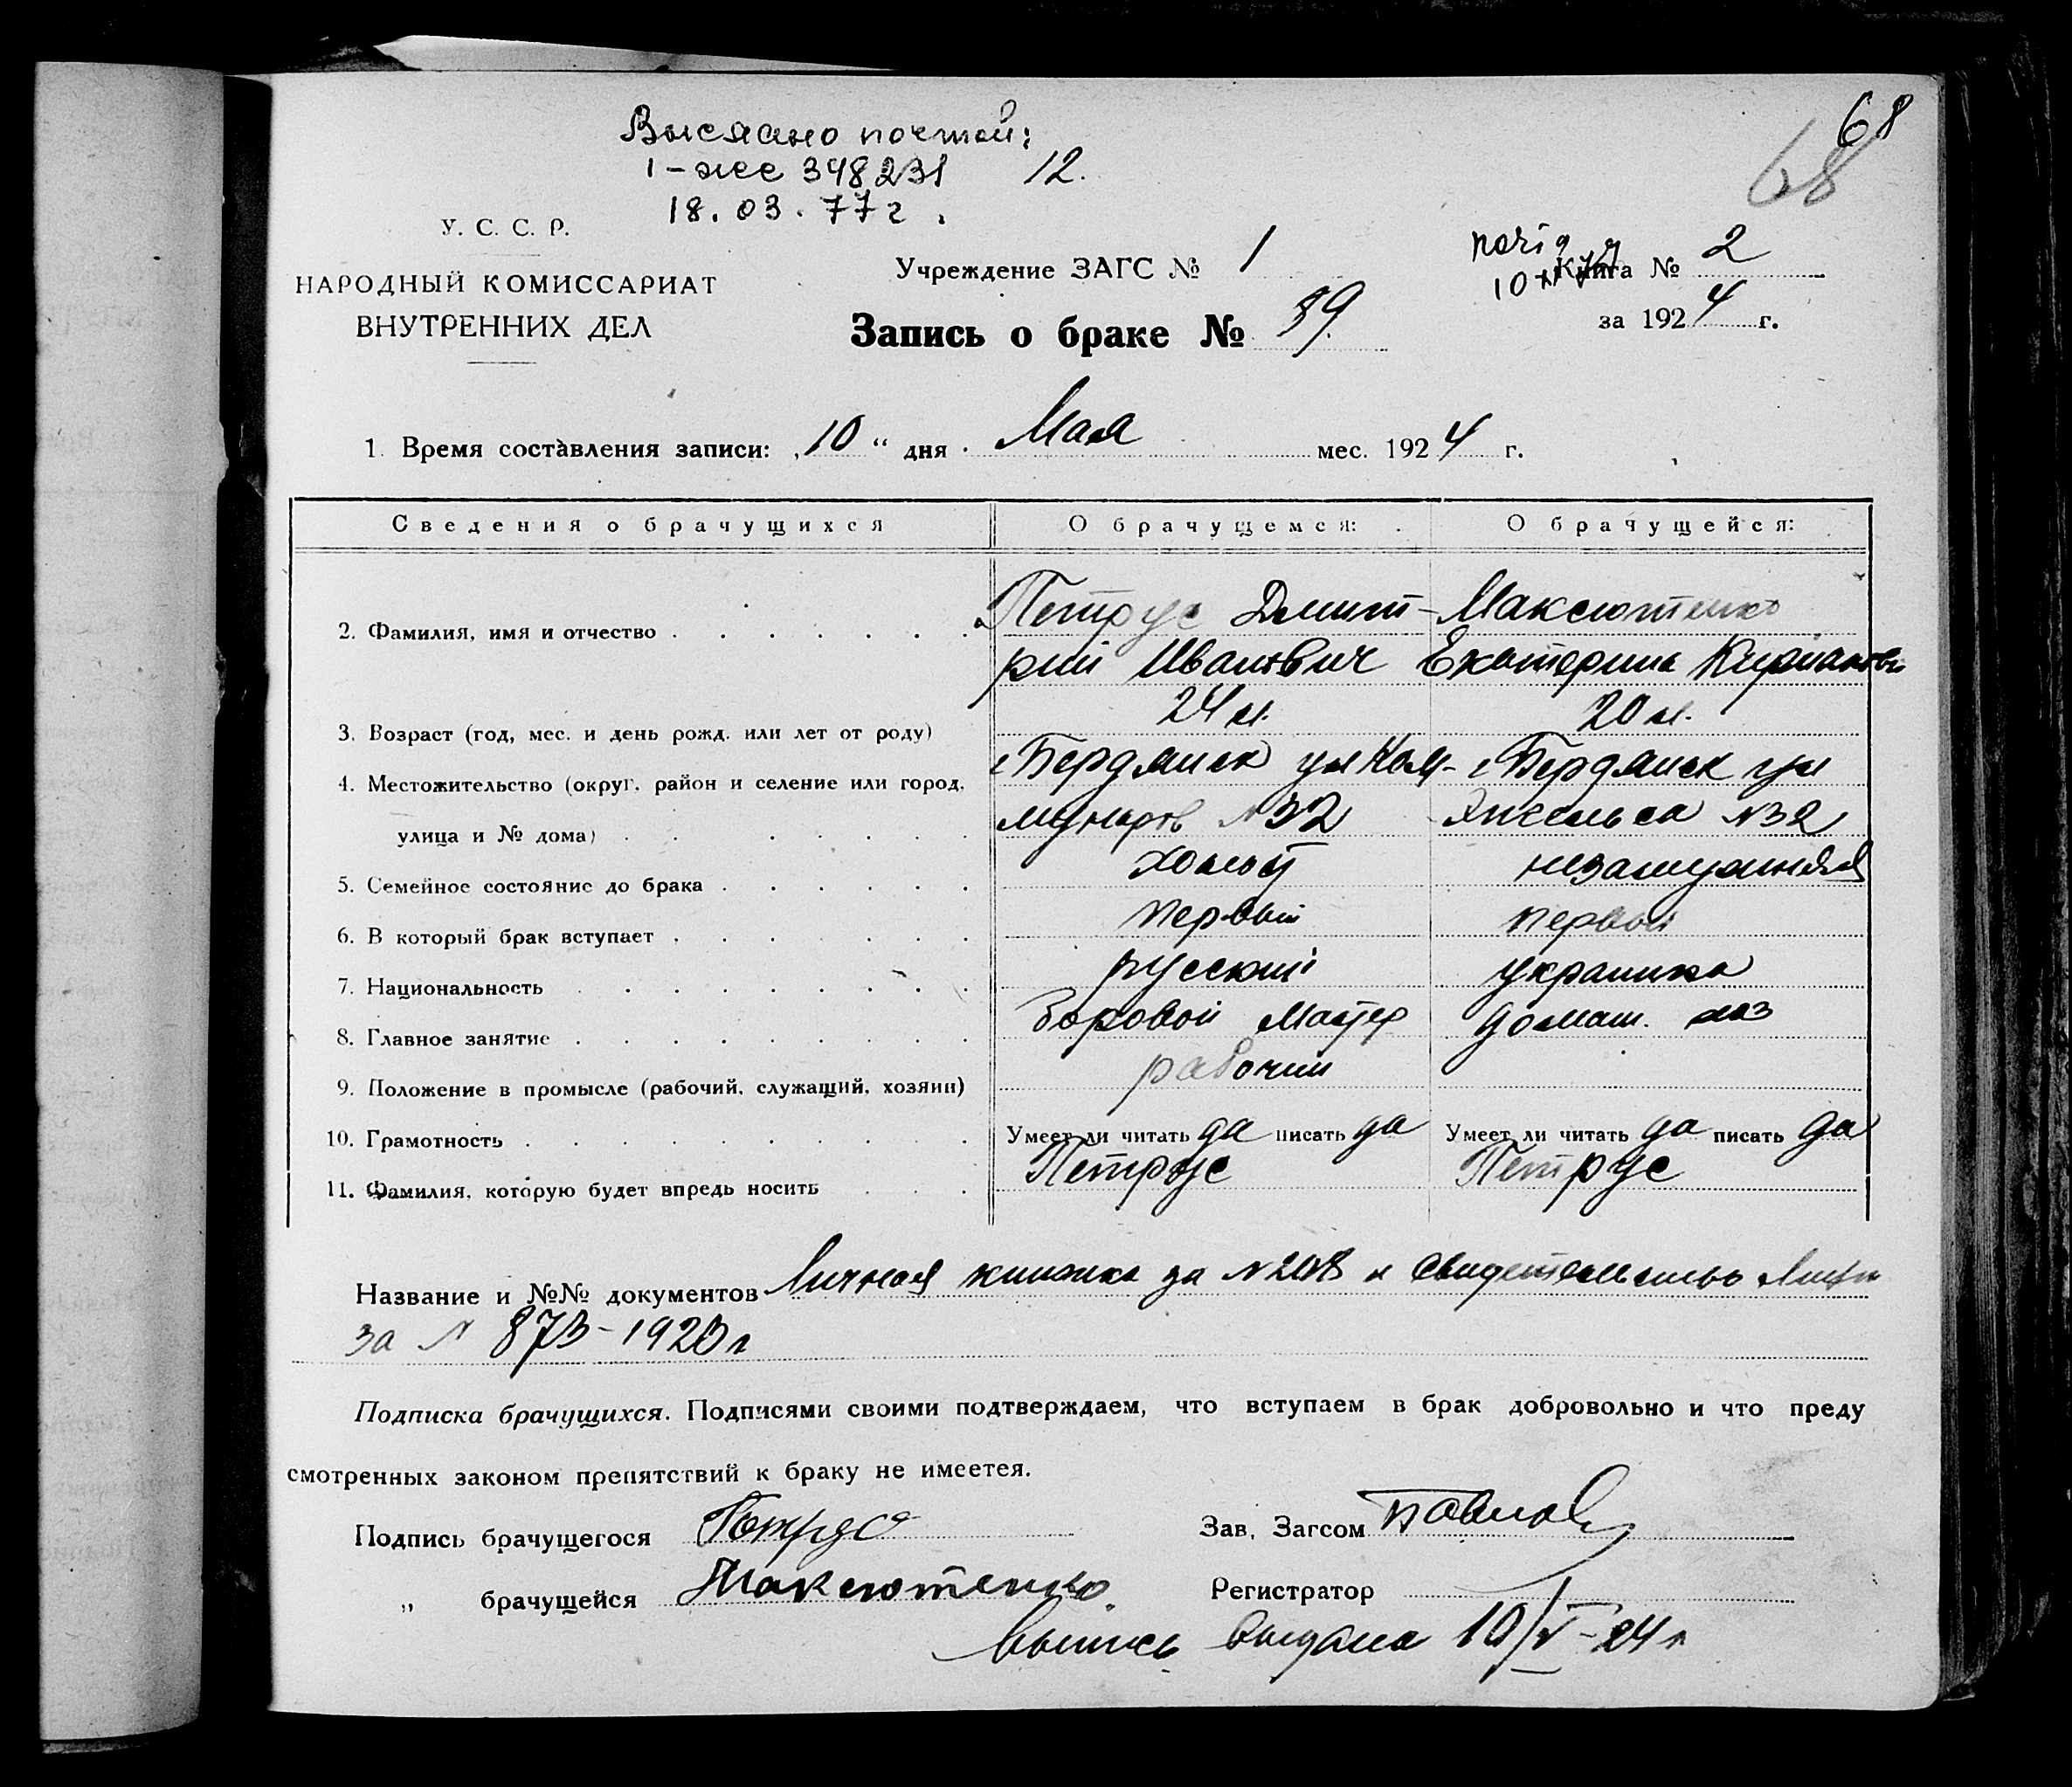 68
68
Выслано почтой:
1-же 348231 12.
18.03.77г.
У. С. С. Р.
НАРОДНЫЙ КОМИССАРИАТ
ВНУТРЕННИХ ДЕЛ
Учреждение ЗАГС № 1
Книга № 2
за 1924 г.
Запись о браке № 39.
1. Время составления записи: „10“ дня Мая мес. 1924 г.
Сведения о брачущихся О брачущемся: О брачущейся:
2. Фамилия, имя и отчество Петрус Дмит- Максютенко
рий Иванович Екатерина
3. Возраст (год, мес. и день рожд. или лет от роду) 24 л. 20 л.
4. Местожительство (округ, район и селение или город, г Бердянск ул Ком- г Бердянск ул
улица и № дома) мунаров №32 Энгельса №32
5. Семейное состояние до брака холост незамужняя
6. В который брак вступает первый первый
7. Национальность русский украинка
8. Главное занятие Мастер домаш. хоз
9. Положение в промысле (рабочий, служащий, хозяин) рабочий
10. Грамотность Умеет ли читать да писать да Умеет ли читать да писать да
11. Фамилия, которую будет впредь носить Петрус Петрус
Название и №№ документов Личная книжка за № и свидетельство
за № 873-1923г
Подписка брачущихся. Подписями своими подтверждаем, что вступаем в брак добровольно и что преду
смотренных законом препятствий к браку не имеется.
Подпись брачущегося Петрус Зав. Загсом Павлов
„ брачущейся Максютенко. Регистратор
Выпись выдана 10/V-24г